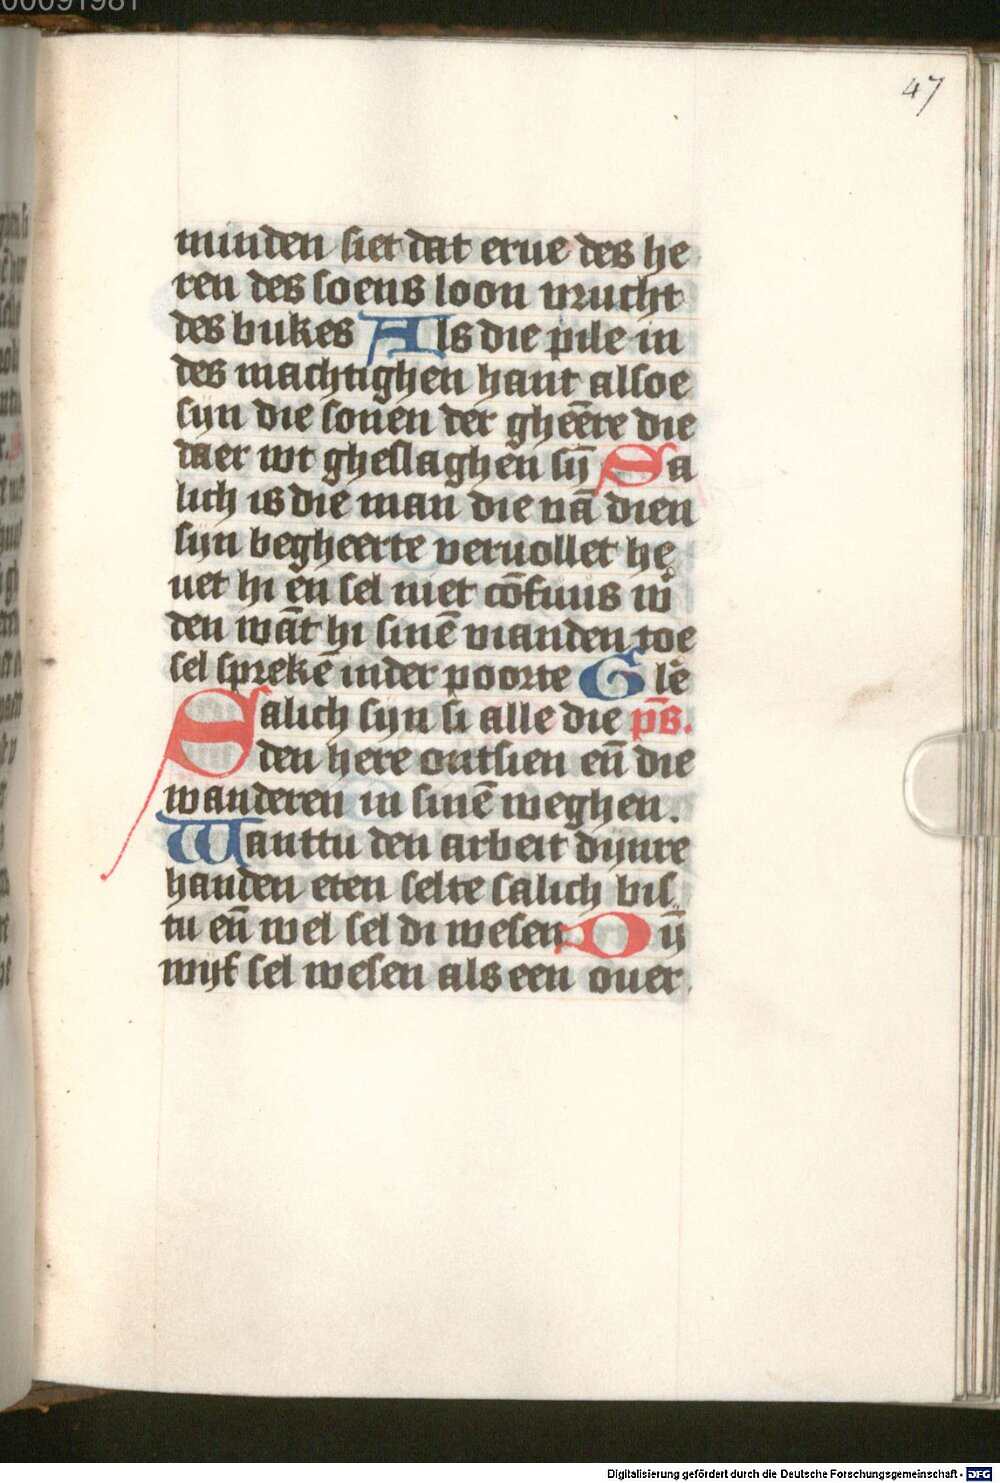 00091981
47
minden siet dat erue des he
ren des soens loon vrucht
des bukes Als die pile in
des machtighen hant alsoe
sijn die sonen der gheẽre die
daer wt gheslaghen sij̃ Sa
lich is die man die vã dien
sijn begheerte veruollet he
uet hi en sel niet cõfuus w
den wãt hi sinẽ vianden toe
sel sprekẽ inder poorte Glẽ
Salich sijn si alle die p̃s.
den here ontsien eñ die
wanderen in sinẽ weghen.
Wanttu den arbeit dijnre
handen eten selte salich bis
tu eñ wel sel di wesen Dij̃
wijf sel wesen als een ouer
Digitalisierung gefördert durch die Deutsche Forschungsgemeinschaft - DFG